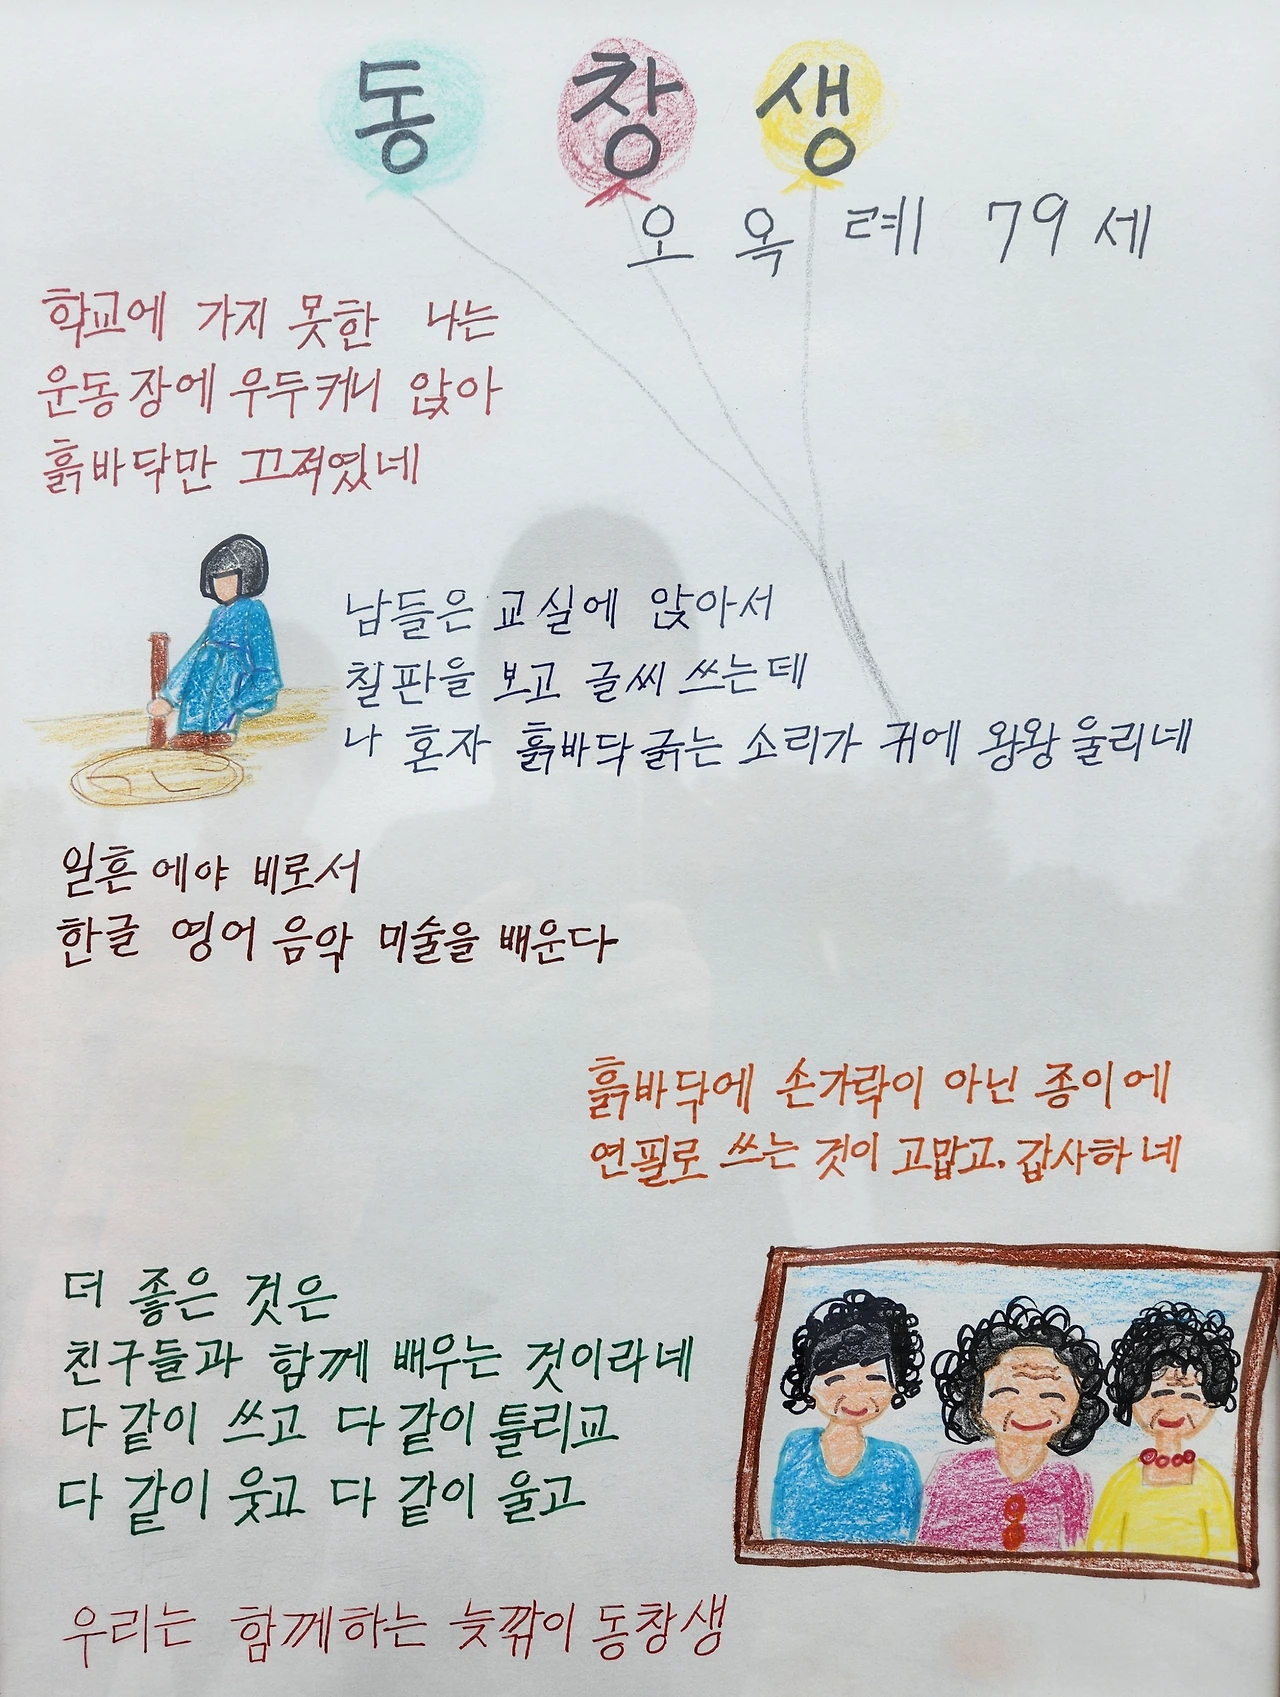 동창생
오옥례 79세
학교에 가지 못한 나는
운동장에 우두커니 앉아
흙바닥만 끄적였네
남들은 교실에 앉아서
칠판을 보고 글씨 쓰는데
나 혼자 흙바닥 긁는 소리가 귀에 왕왕 울리네
일흔에야 비로서
한글 영어 음악 미술을 배운다
흙바닥에 손가락이 아닌 종이에
연필로 쓰는 것이 고맙고, 감사하네
더 좋은 것은
친구들과 함께 배우는 것이라네
다 같이 쓰고 다 같이 틀리고
다 같이 웃고 다 같이 울고
우리는 함께하는 늦깎이 동창생